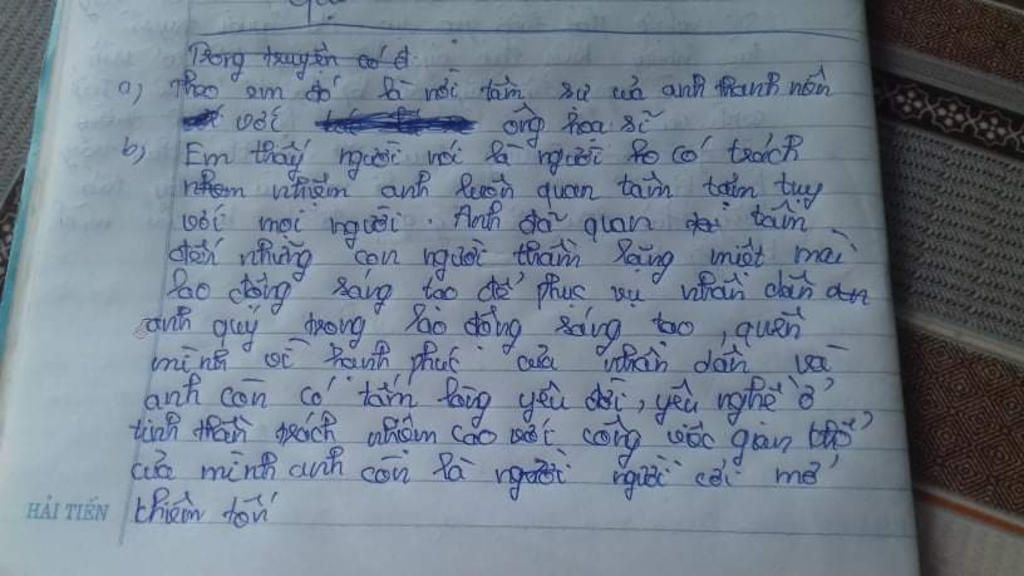 Trong truyện có đ
a) Theo em đó là nới tâm sự của anh thanh nên
với ông hoa sĩ
b) Em thấy người nói là người ko có trách
nhiệm anh luôn quan tâm tận tuy
với mọi người. Anh đã quan tâm
đến những con người thầm lặng miệt mài
lao động sáng tạo để phục vụ nhân dân
anh quý trong lao động sáng tạo, quên
mình vì hanh phúc của nhân dân và
anh còn có tấm lòng yêu đời, yêu nghề ở
tinh thần trách nhiệm cao với công việc gian khổ
của mình anh còn là người cởi mở
khiêm tốn
HẢI TIẾN